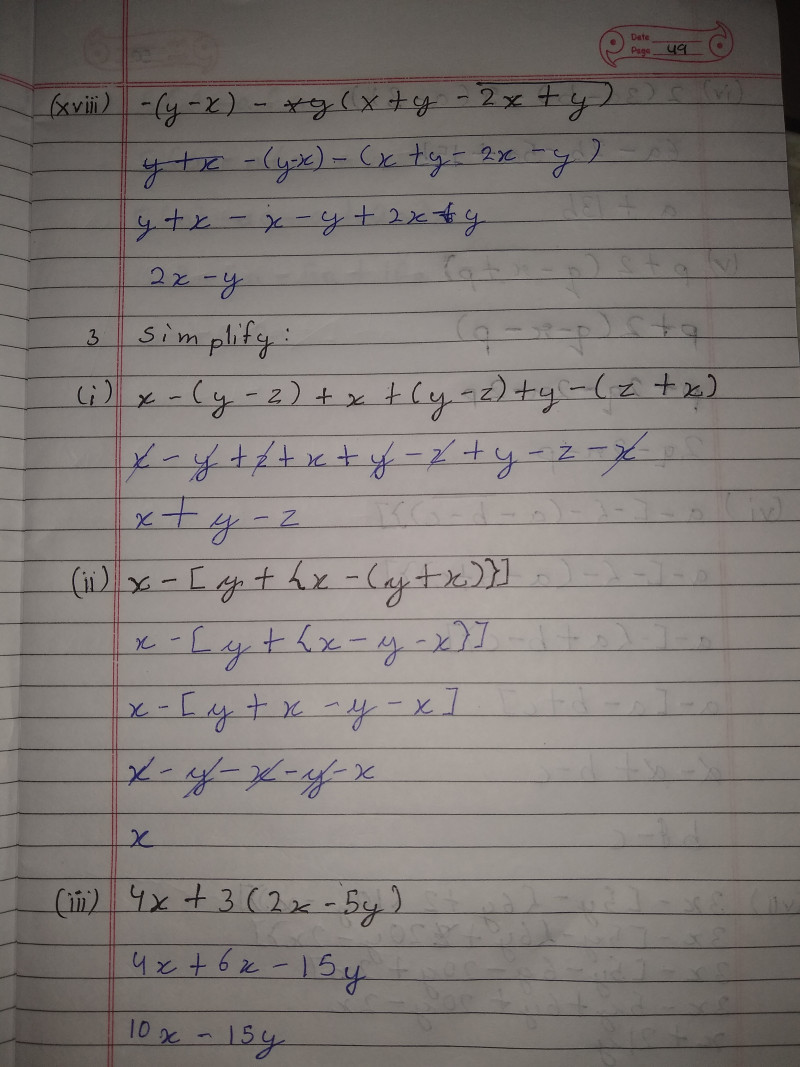 Date
Page 49
(xviii) -(y-x) - xy (x+y - 2x + y)
y+x -(y-x) - (x+y - 2x - y)
y+x - x - y + 2x + y
2x - y
3 Simplify:
(i) x - (y - z) + x + (y - z) + y - (z + x)
x - y + z + x + y - z + y - z - x
x + y - z
(ii) x - [y + {x - (y+x)}]
x - [y + {x - y - x}]
x - [y + x - y - x]
x - y - x - y - x
x
(iii) 4x + 3 (2x - 5y)
4x + 6x - 15y
10x - 15y